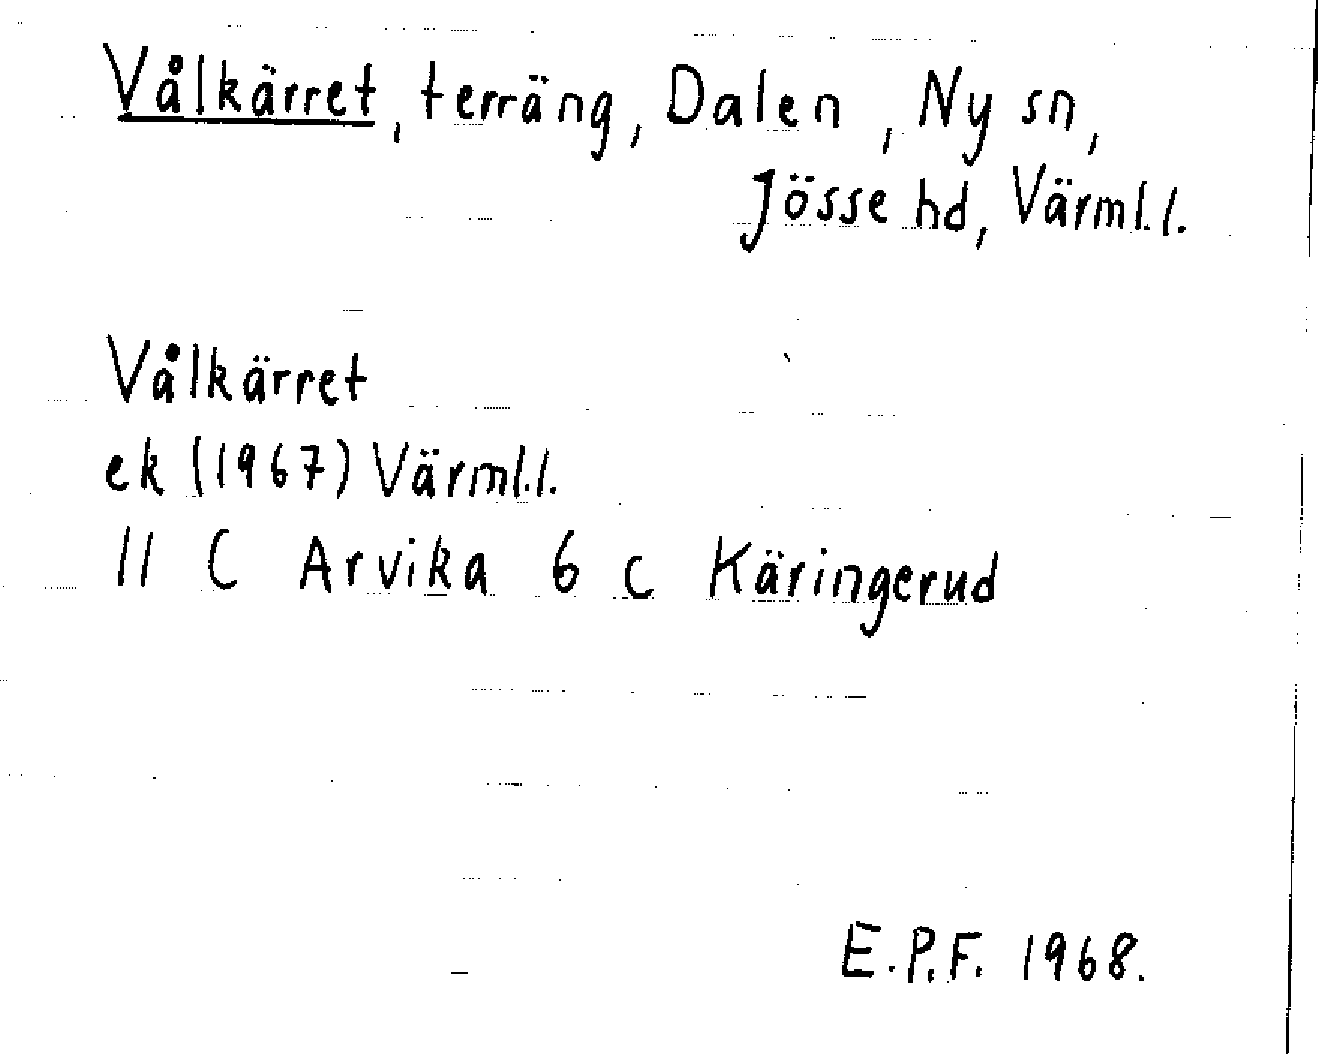 Vålkärret, terräng, Dalen, Ny sn,
Jösse hd, Värml.l.
Vålkärret
ek (1967) Värml.l.
11 C Arvika 6 c Käringerud
E.P.F. 1968.